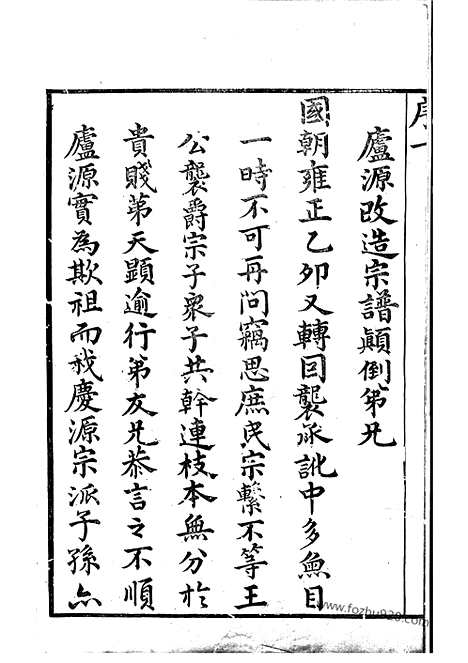 序一
廬源改造宗譜顛倒第兄
國朝雍正乙卯又轉回襲承訛中多魚目
一時不可再问竊思庶民宗繫不等王
公襲爵宗子衆子共幹連枝本無分於
貴賤苐天顯逾行第友兄恭言之不順
廬源實為欺祖而我慶源宗派子孫亦
www.fozhu920.com